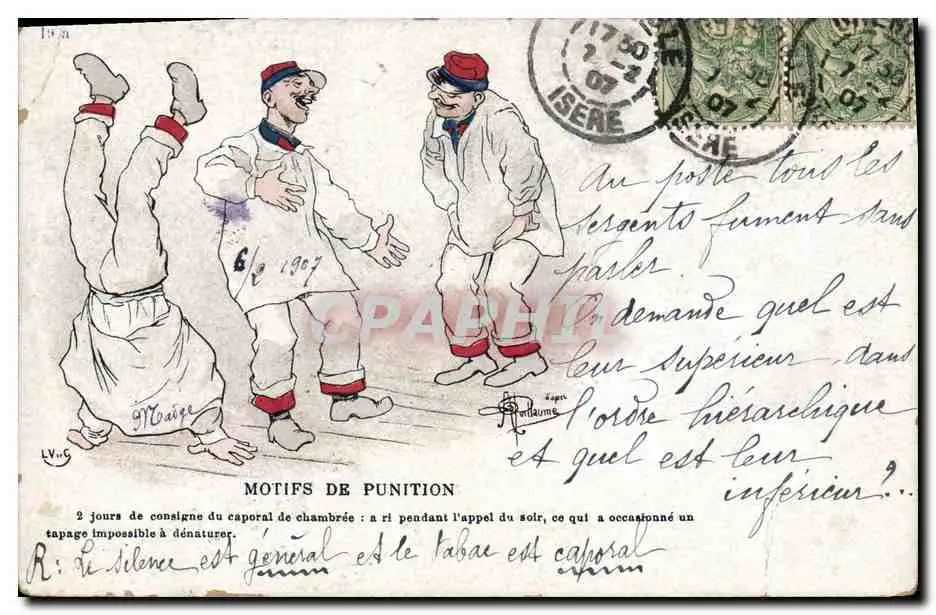 17 30
7 - 2
07
ISERE
07
ISERE
07
Au poste tous les
sergents fument sans
parler.
On demande quel est
leur supérieur, dans
l'ordre hiérarchique
et quel est leur
inférieur?..
6/2 1907
CPAPHIL
Madge
d'après
Guillaume
L.V. & C
MOTIFS DE PUNITION
2 jours de consigne du caporal de chambrée : a ri pendant l'appel du soir, ce qui a occasionné un
tapage impossible à dénaturer.
R: Le silence est général et le tabac est caporal